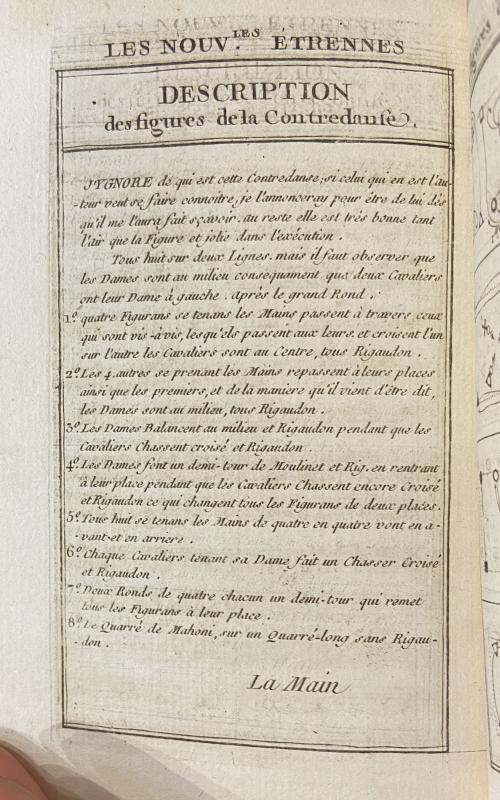 LES NOUV.LES ÉTRENNES
DESCRIPTION
des figures de la Contredanse.
J'YGNORE de qui est cette Contredanse; si celui qui en est l'au-
-teur veut se faire connoitre, je l'annonceray pour être de lui dés
qu'il me l'aura fait sçavoir. au reste elle est trés bonne tant
l'air que la Figure et jolie dans l'exécution.
Tous huit sur deux Lignes. mais il faut observer que
les Dames sont au milieu consequament que deux Cavaliers
ont leur Dame à gauche. Aprés le grand Rond.
1.º quatre Figurans se tenans les Mains passent à travers ceux
qui sont vis-à-vis, lesqu'els passent aux leurs. et croisent l'un
sur l'autre les Cavaliers sont au Centre, tous Rigaudon.
2.º Les 4. autres se prenant les Mains repassent à leurs places
ainsi que les premiers, et de la maniere qu'il vient d'être dit,
les Dames sont au milieu, tous Rigaudon.
3.º Les Dames Balancent au milieu et Rigaudon pendant que les
Cavaliers Chassent croisé et Rigaudon.
4.º Les Dames font un demi-tour de Moulinet et Rig. en rentrant
à leur place pendant que les Cavaliers Chassent encore Croisé
et Rigaudon ce qui changent tous les Figurans de deux places.
5.º Tous huit se tenans les Mains de quatre en quatre vont en a-
-vant et en arriere.
6.º Chaque Cavaliers tenant sa Dame fait un Chasser Croisé
et Rigaudon.
7.º Deux Ronds de quatre chacun un demi-tour qui remet
tous les Figurans à leur place.
8.º Le Quarré de Mahoni, sur un Quarré-long sans Rigau-
-don.
La Main